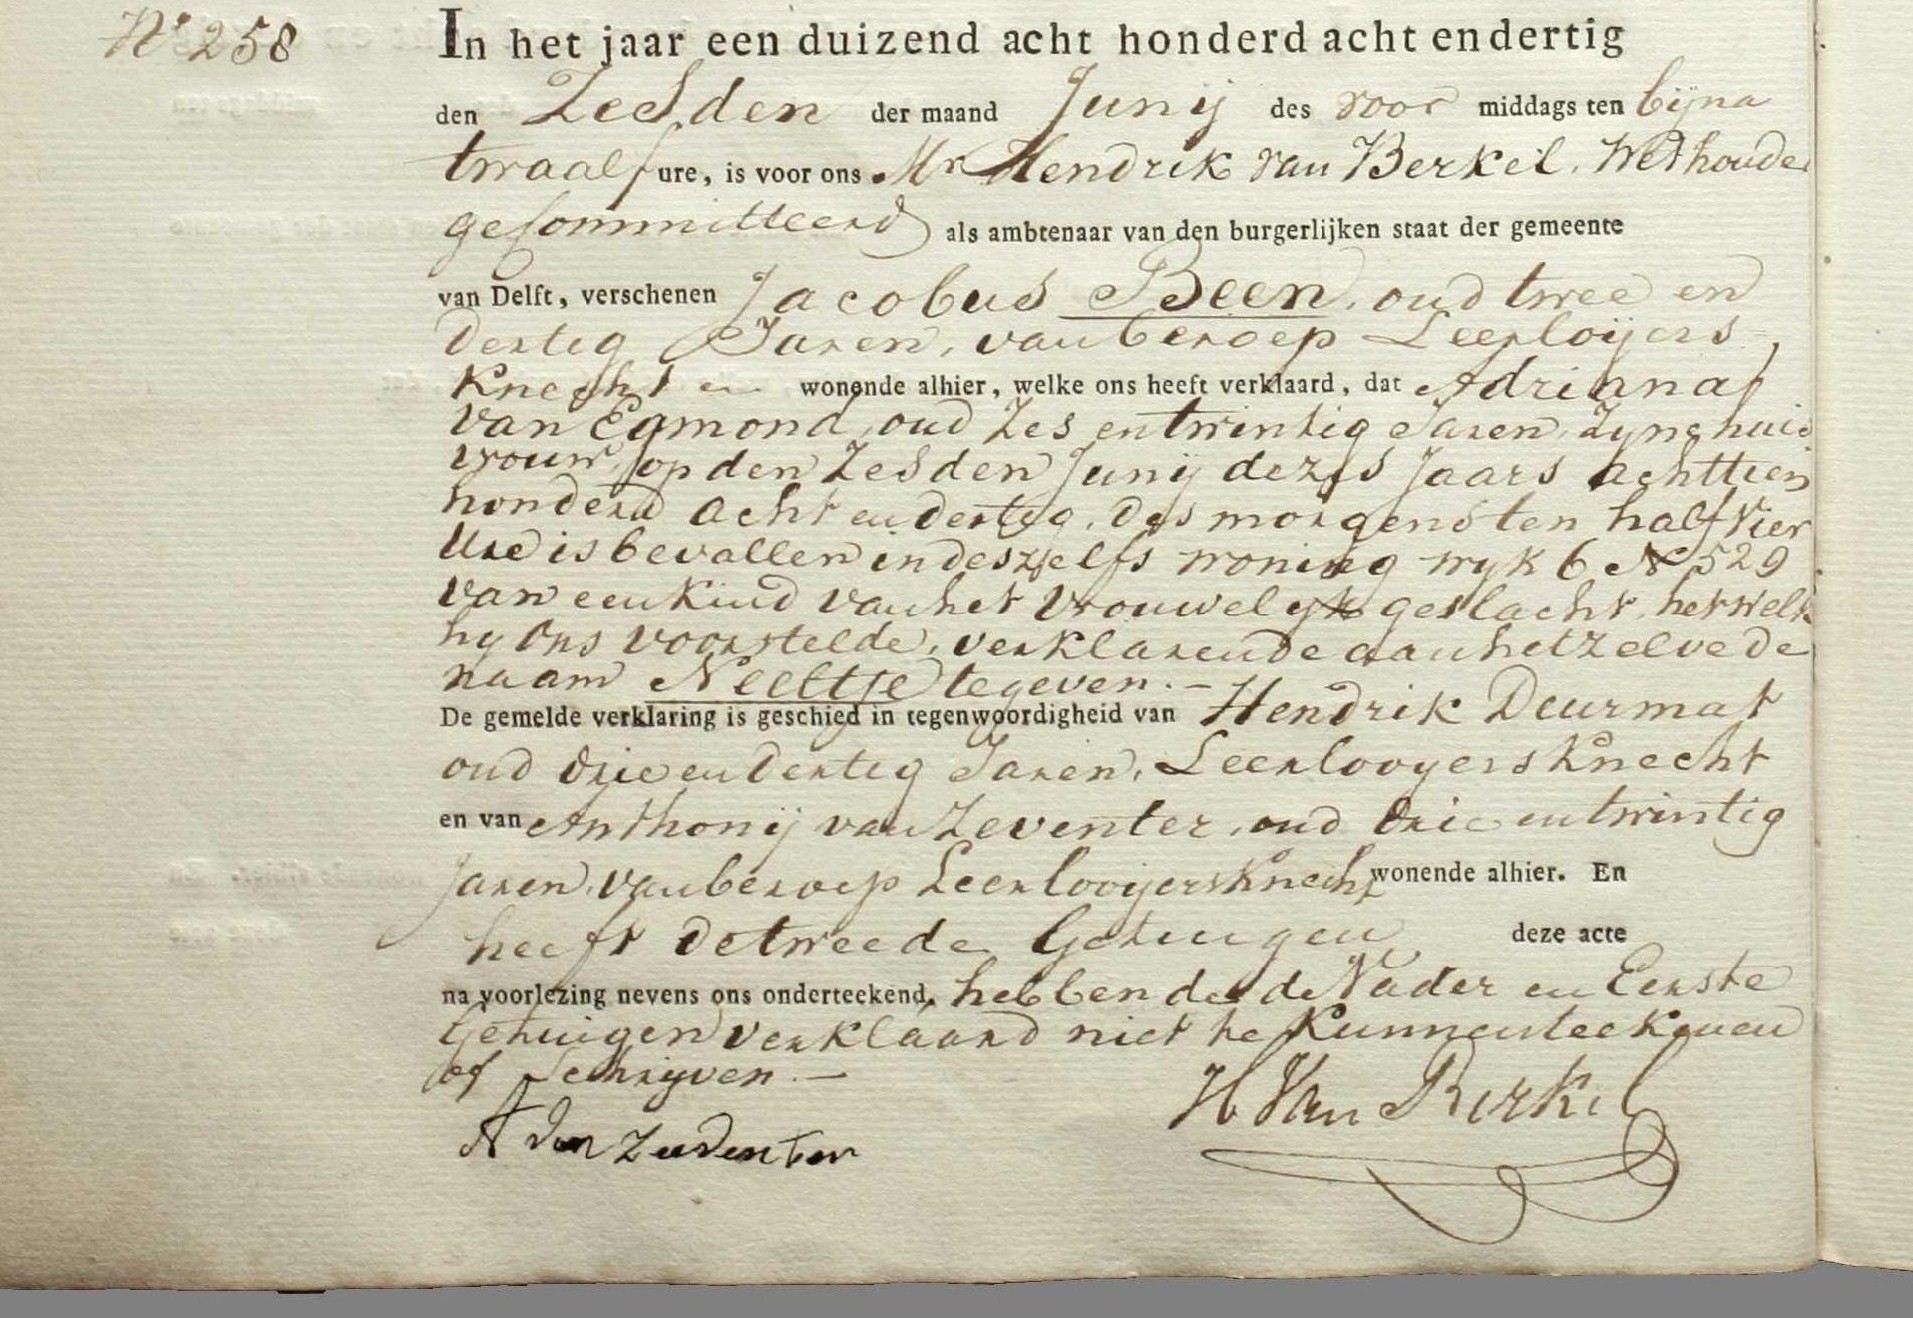 No 258
In het jaar een duizend acht honderd acht en dertig
den Zesden der maand Junij des voor middags ten bijna
twaalf ure, is voor ons Mr Hendrik van Berkel, Wethouder
gecommitteerd als ambtenaar van den burgerlijken staat der gemeente
van Delft, verschenen Jacobus Been, oud twee en
dertig Jaren, van beroep Leerloijers
Knecht en wonende alhier, welke ons heeft verklaard, dat Adriana
van Egmond, oud Zes en twintig Jaren, Zyne huis
vrouw, op den Zesden Junij dezes Jaars achttien
honderd acht en dertig, des morgens ten half vier
Ure is bevallen in deszelfs woning wyk 6 No 529
van een Kind van het Vrouwelyk geslacht, hetwelk
hy ons voorstelde, verklarende aan hetzelve de
naam Neeltje te geven. —
De gemelde verklaring is geschied in tegenwoordigheid van Hendrik Deurmat
oud drie en dertig Jaren, Leerlooyers Knecht
en van Anthonij van Zeventer, oud drie en twintig
Jaren, van beroep Leerlooijersknecht wonende alhier. En
heeft de tweede Getuigen deze acte
na voorlezing nevens ons onderteekend, hebbende de Vader en Eerste
Getuigen verklaard niet te Kunnen teekenen
of Schryven. —
A van Zeeventer
H Van Berkel